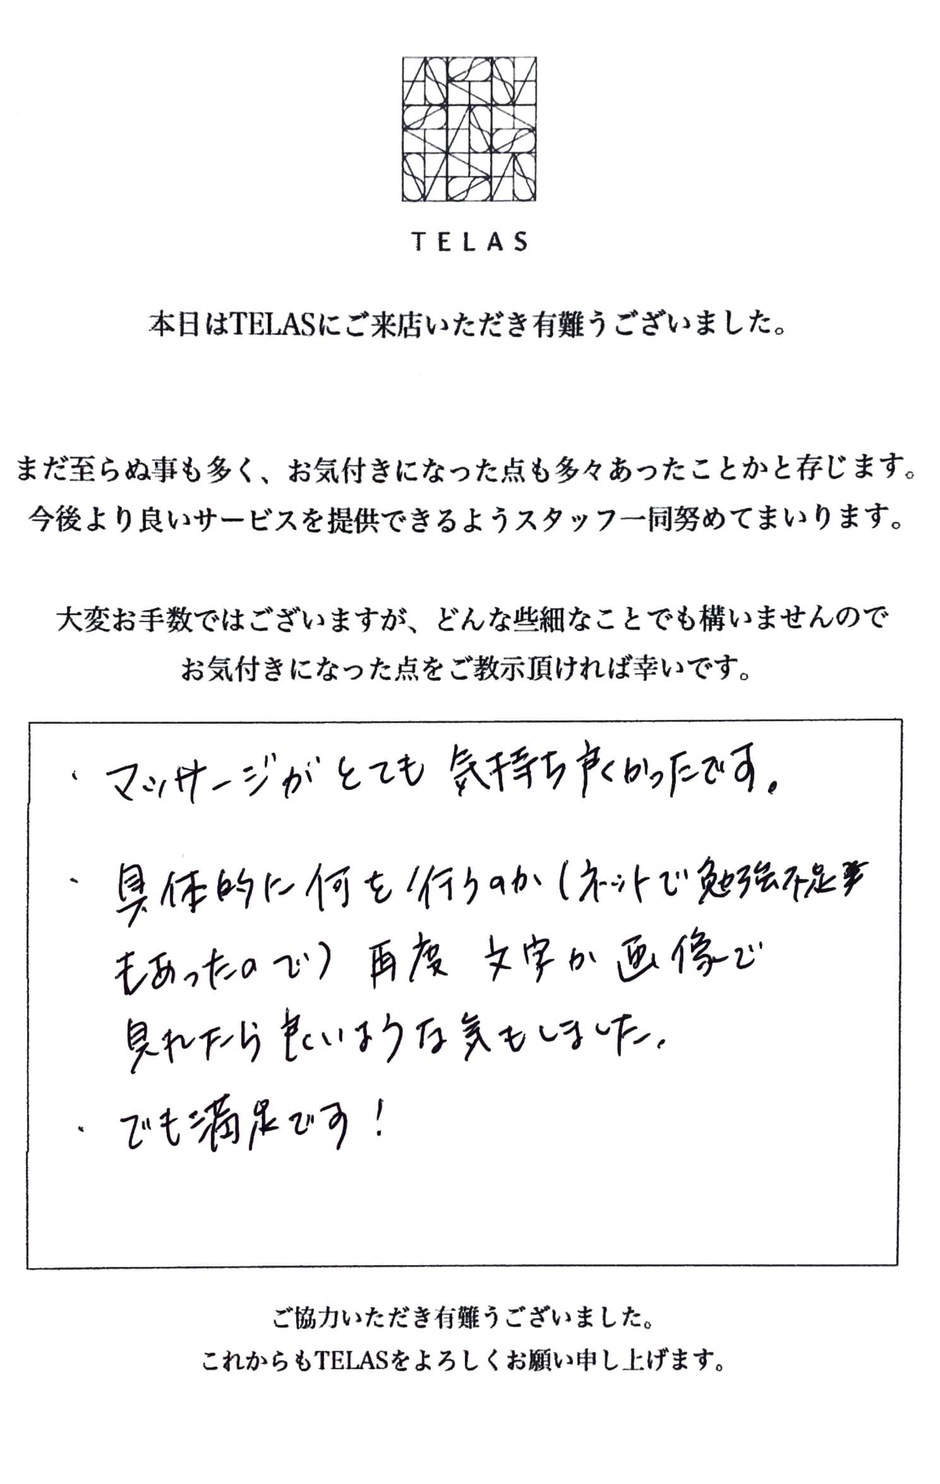 TELAS
本日はTELASにご来店いただき有難うございました。
まだ至らぬ事も多く、お気付きになった点も多々あったことかと存じます。
今後より良いサービスを提供できるようスタッフ一同努めてまいります。
大変お手数ではございますが、どんな些細なことでも構いませんので
お気付きになった点をご教示頂ければ幸いです。
・マッサージがとても気持ち良くかったです。
・具体的に何を行うのか(ネットで勉強不足
もあったので)再度 文字か画像で
見れたら良いような気もしました。
・でも満足です!
ご協力いただき有難うございました。
これからもTELASをよろしくお願い申し上げます。